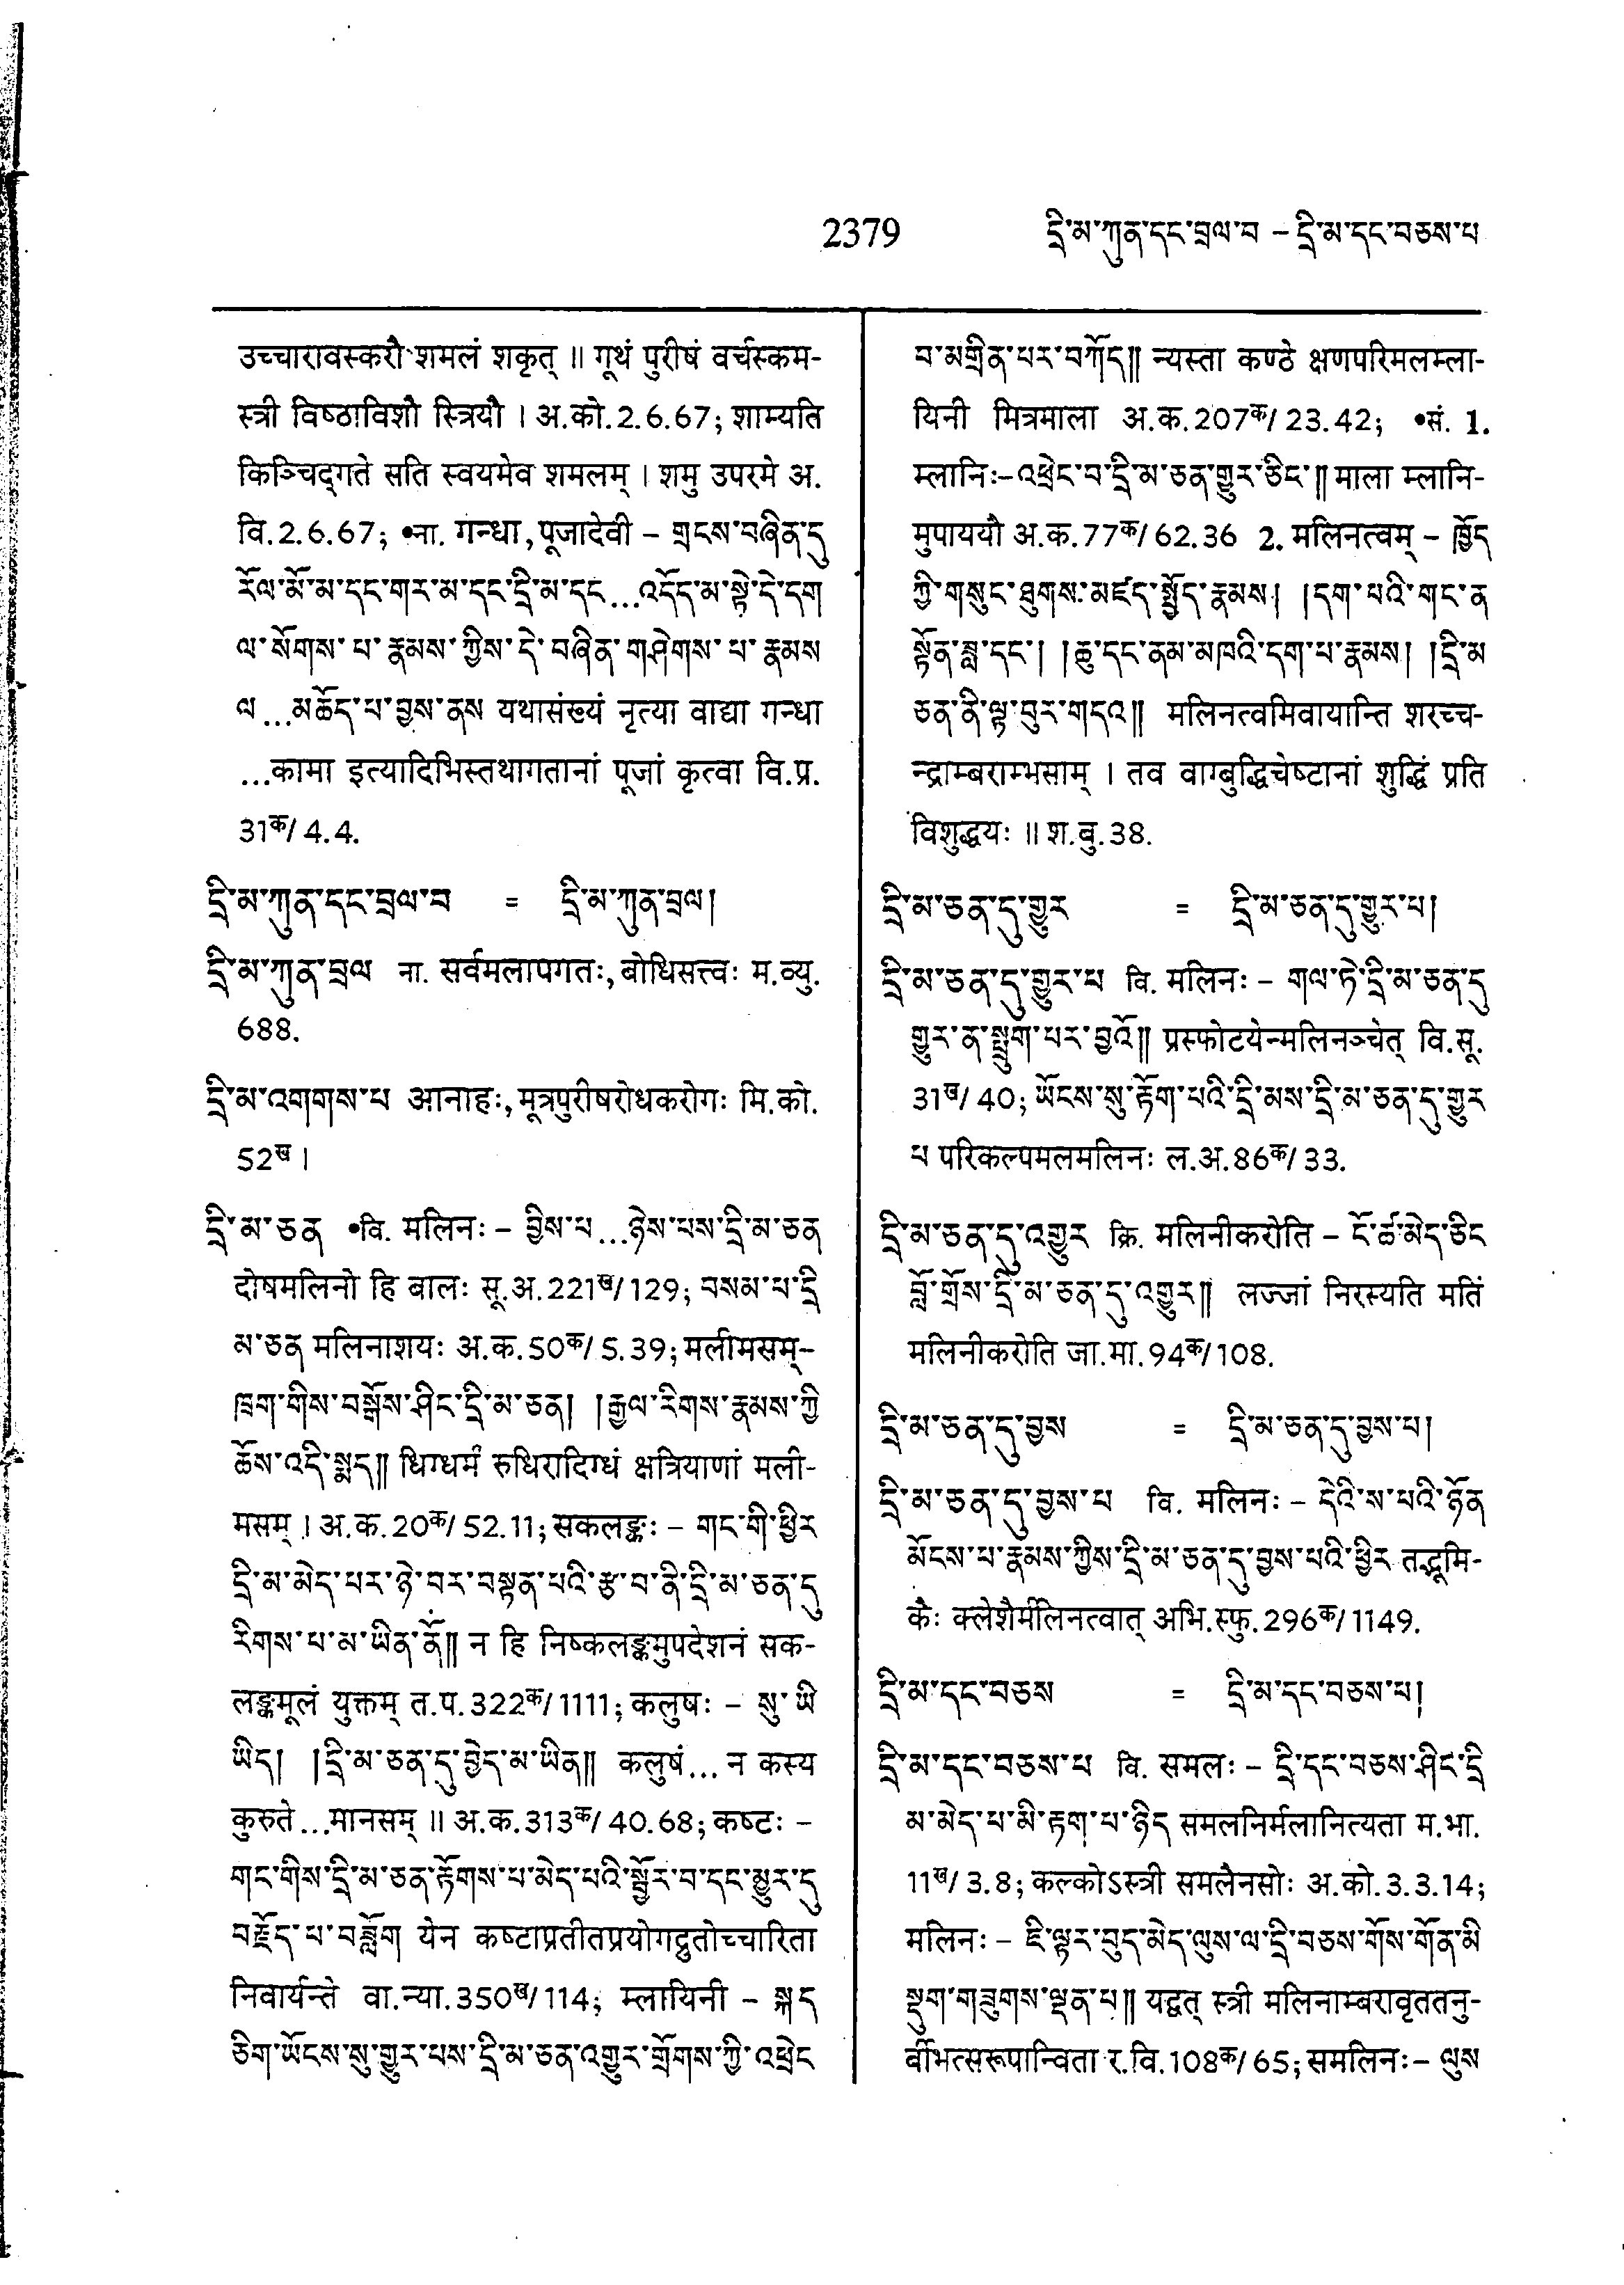 2379
དྲི་མ་ཀུན་དང་བྲལ་བ – དྲི་མ་དང་བཅས་པ
उच्चारावस्करौ शमलं शकृत् ॥ गूथं पुरीषं वर्चस्कम-
स्त्री विष्ठाविशौ स्त्रियौ । अ.को.2.6.67; शाम्यति
किञ्चिद्गते सति स्वयमेव शमलम् । शमु उपरमे अ.
वि.2.6.67; •ना. गन्धा, पूजादेवी – གྲངས་བཞིན་དུ
རོལ་མོ་མ་དང་གར་མ་དང་དྲི་མ་དང...འདོད་མ་སྟེ་དེ་དག
ལ་སོགས་པ་རྣམས་ཀྱིས་དེ་བཞིན་གཤེགས་པ་རྣམས
ལ...མཆོད་པ་བྱས་ནས यथासंख्यं नृत्या वाद्या गन्धा
...कामा इत्यादिभिस्तथागतानां पूजां कृत्वा वि.प्र.
31क/4.4.
དྲི་མ་ཀུན་དང་བྲལ་བ = དྲི་མ་ཀུན་བྲལ།
དྲི་མ་ཀུན་བྲལ ना. सर्वमलापगतः, बोधिसत्त्वः म.व्यु.
688.
དྲི་མ་འགགས་པ आनाहः, मूत्रपुरीषरोधकरोगः मि.को.
52ख ।
དྲི་མ་ཅན •वि. मलिनः – བྱིས་པ...ཉེས་པས་དྲི་མ་ཅན
दोषमलिनो हि बालः सू.अ.221ख/129; བསམ་པ་དྲི
མ་ཅན मलिनाशयः अ.क.50क/5.39; मलीमसम्–
ཁྲག་གིས་བསྒོས་ཤིང་དྲི་མ་ཅན། །རྒྱལ་རིགས་རྣམས་ཀྱི
ཆོས་འདི་སྨད།། धिग्धर्मं रुधिरादिग्धं क्षत्रियाणां मली-
मसम् । अ.क.20क/52.11; सकलङ्कः – གང་གི་ཕྱིར
དྲི་མ་མེད་པར་ཉེ་བར་བསྟན་པའི་རྩ་བ་ནི་དྲི་མ་ཅན་དུ
རིགས་པ་མ་ཡིན་ནོ།། न हि निष्कलङ्कमुपदेशनं सक-
लङ्कमूलं युक्तम् त.प.322क/1111; कलुषः – སུ་ཡི
ཡིད། །དྲི་མ་ཅན་དུ་བྱེད་མ་ཡིན།། कलुषं... न कस्य
कुरुते...मानसम् ॥ अ.क.313क/40.68; कष्टः –
གང་གིས་དྲི་མ་ཅན་རྟོགས་པ་མེད་པའི་སྦྱོར་བ་དང་མྱུར་དུ
བརྗོད་པ་བཟློག येन कष्टाप्रतीतप्रयोगद्रुतोच्चारिता
निवार्यन्ते वा.न्या.350ख/114; म्लायिनी – སྐད
ཅིག་ཡོངས་སུ་གྱུར་པས་དྲི་མ་ཅན་འགྱུར་གྲོགས་ཀྱི་འཕྲེང
བ་མགྲིན་པར་བཀོད།། न्यस्ता कण्ठे क्षणपरिमलम्ला-
यिनी मित्रमाला अ.क.207क/23.42; •सं. 1.
म्लानिः–འཕྲེང་བ་དྲི་མ་ཅན་གྱུར་ཅིང་།། माला म्लानि-
मुपाययौ अ.क.77क/62.36 2. मलिनत्वम् – ཁྱོད
ཀྱི་གསུང་ཐུགས་མཛད་སྤྱོད་རྣམས། །དག་པའི་གང་ན
སྟོན་ཟླ་དང་། །ཆུ་དང་ནམ་མཁའི་དག་པ་རྣམས། །དྲི་མ
ཅན་ནི་ལྟ་བུར་གདའ།། मलिनत्वमिवायान्ति शरच्च-
न्द्राम्बराम्भसाम् । तव वाग्बुद्धिचेष्टानां शुद्धिं प्रति
विशुद्धयः ॥ श.बु.38.
དྲི་མ་ཅན་དུ་གྱུར = དྲི་མ་ཅན་དུ་གྱུར་པ།
དྲི་མ་ཅན་དུ་གྱུར་པ वि. मलिनः – གལ་ཏེ་དྲི་མ་ཅན་དུ
གྱུར་ན་སྤྲུག་པར་བྱའོ།། प्रस्फोटयेन्मलिनञ्चेत् वि.सू.
31ख/40; ཡོངས་སུ་རྟོག་པའི་དྲི་མས་དྲི་མ་ཅན་དུ་གྱུར
པ परिकल्पमलमलिनः ल.अ.86क/33.
དྲི་མ་ཅན་དུ་འགྱུར क्रि. मलिनीकरोति – ངོ་ཚ་མེད་ཅིང
བློ་གྲོས་དྲི་མ་ཅན་དུ་འགྱུར།། लज्जां निरस्यति मतिं
मलिनीकरोति जा.मा.94क/108.
དྲི་མ་ཅན་དུ་བྱས = དྲི་མ་ཅན་དུ་བྱས་པ།
དྲི་མ་ཅན་དུ་བྱས་པ वि. मलिनः – དེའི་ས་པའི་ཉོན
མོངས་པ་རྣམས་ཀྱིས་དྲི་མ་ཅན་དུ་བྱས་པའི་ཕྱིར तद्भूमि-
कैः क्लेशैर्मलिनत्वात् अभि.स्फु.296क/1149.
དྲི་མ་དང་བཅས = དྲི་མ་དང་བཅས་པ།
དྲི་མ་དང་བཅས་པ वि. समलः – དྲི་དང་བཅས་ཤིང་དྲི
མ་མེད་པ་མི་རྟག་པ་ཉིད समलनिर्मलानित्यता म.भा.
11ख/3.8; कल्कोऽस्त्री समलैनसोः अ.को.3.3.14;
मलिनः – ཇི་ལྟར་བུད་མེད་ལུས་ལ་དྲི་བཅས་གོས་གོན་མི
སྡུག་གཟུགས་ལྡན་པ།། यद्वत् स्त्री मलिनाम्बरावृततनु-
र्बीभत्सरूपान्विता र.वि.108क/65; समलिनः– ལུས